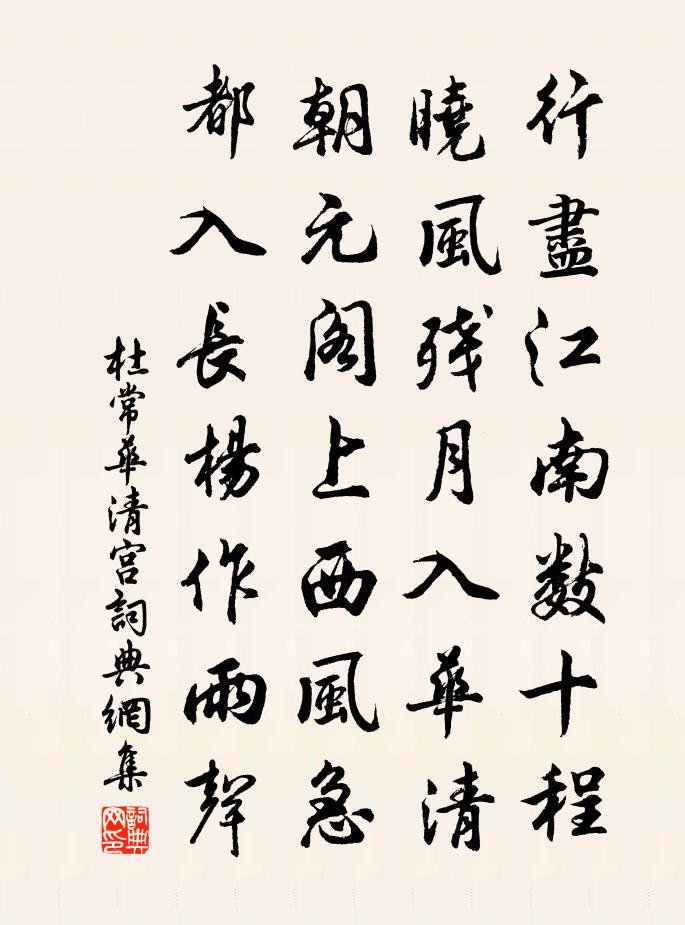 行盡江南數十程
曉風殘月入華清
朝元閣上西風急
都入長楊作雨聲
杜常華清宮詞典網集
詞典網印